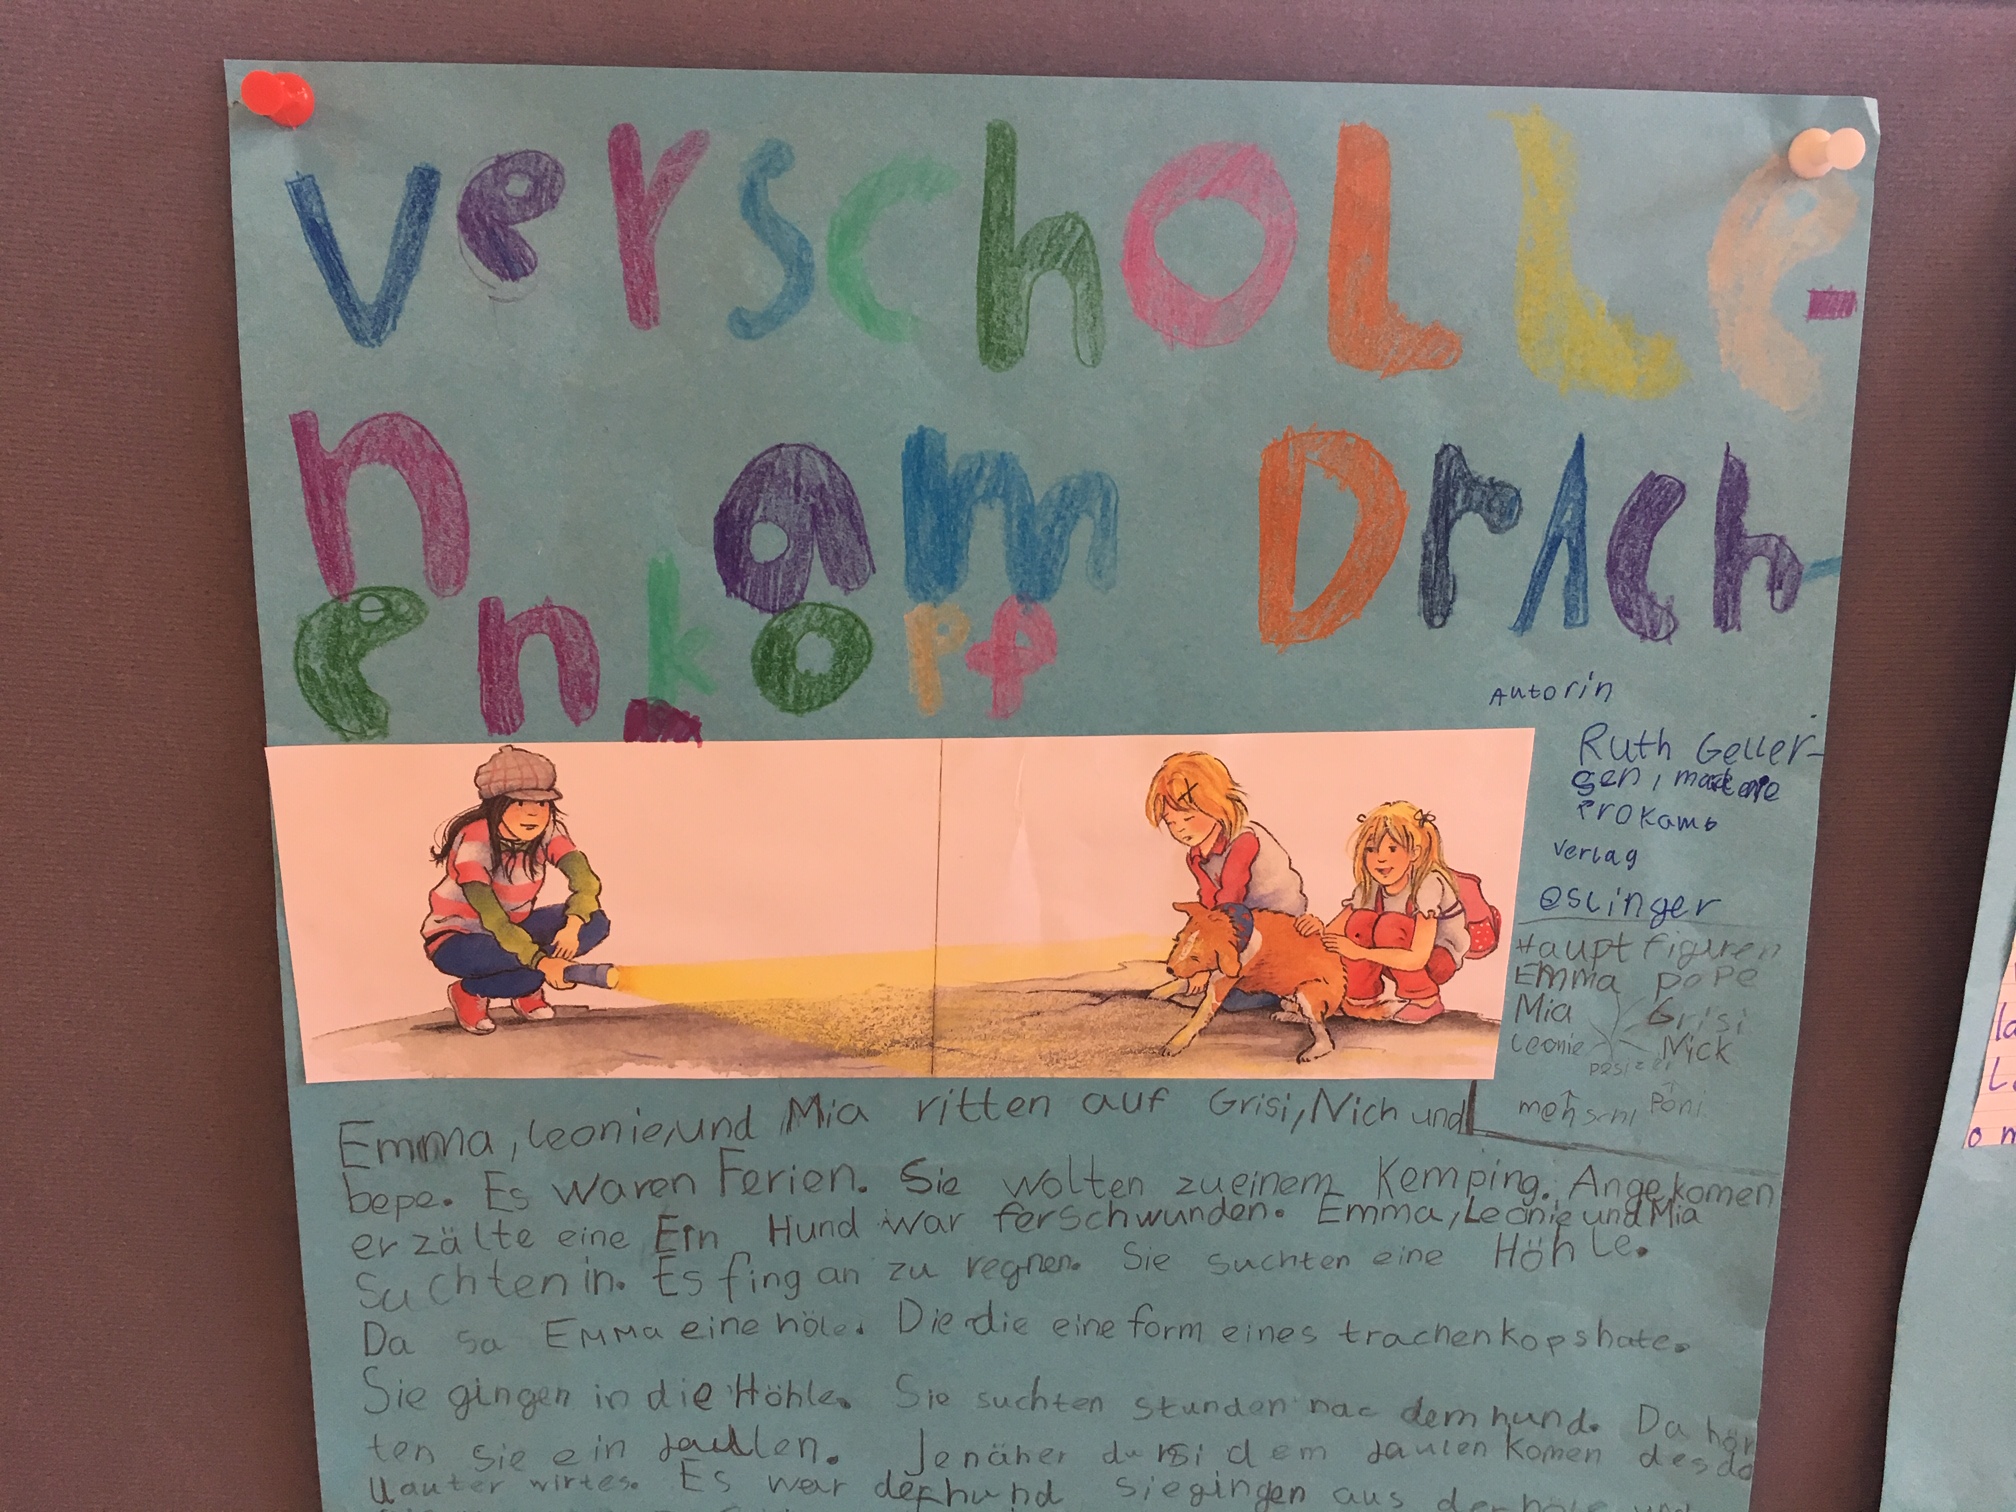 verscholle-
n am Drach-
enkopf
Autorin
Ruth Geller-
sen,
Prokamp
verlag
eslinger
Hauptfiguren
Emma pope
Mia Grisi
Leonie Nick
pesizer
mehschn Poni
Emma, Leonie, und Mia ritten auf Grisi, Nich und
bepe. Es waren Ferien. Sie wolten zueinem Kemping. Angekomen
erzälte eine Ein Hund war ferschwunden. Emma, Leonie und Mia
Suchten in. Es fing an zu regnen. Sie suchten eine Höhle.
Da sa Emma eine höle. Die die eine form eines trachenkopshate.
Sie gingen in die Höhle. Sie suchten stunden nac dem hund. Da hör
ten sie ein jaullen. Jenäher dem jaulen komen desdo
lauter wirtes. Es war derhund siegingen aus derhöle und
la
L
o m